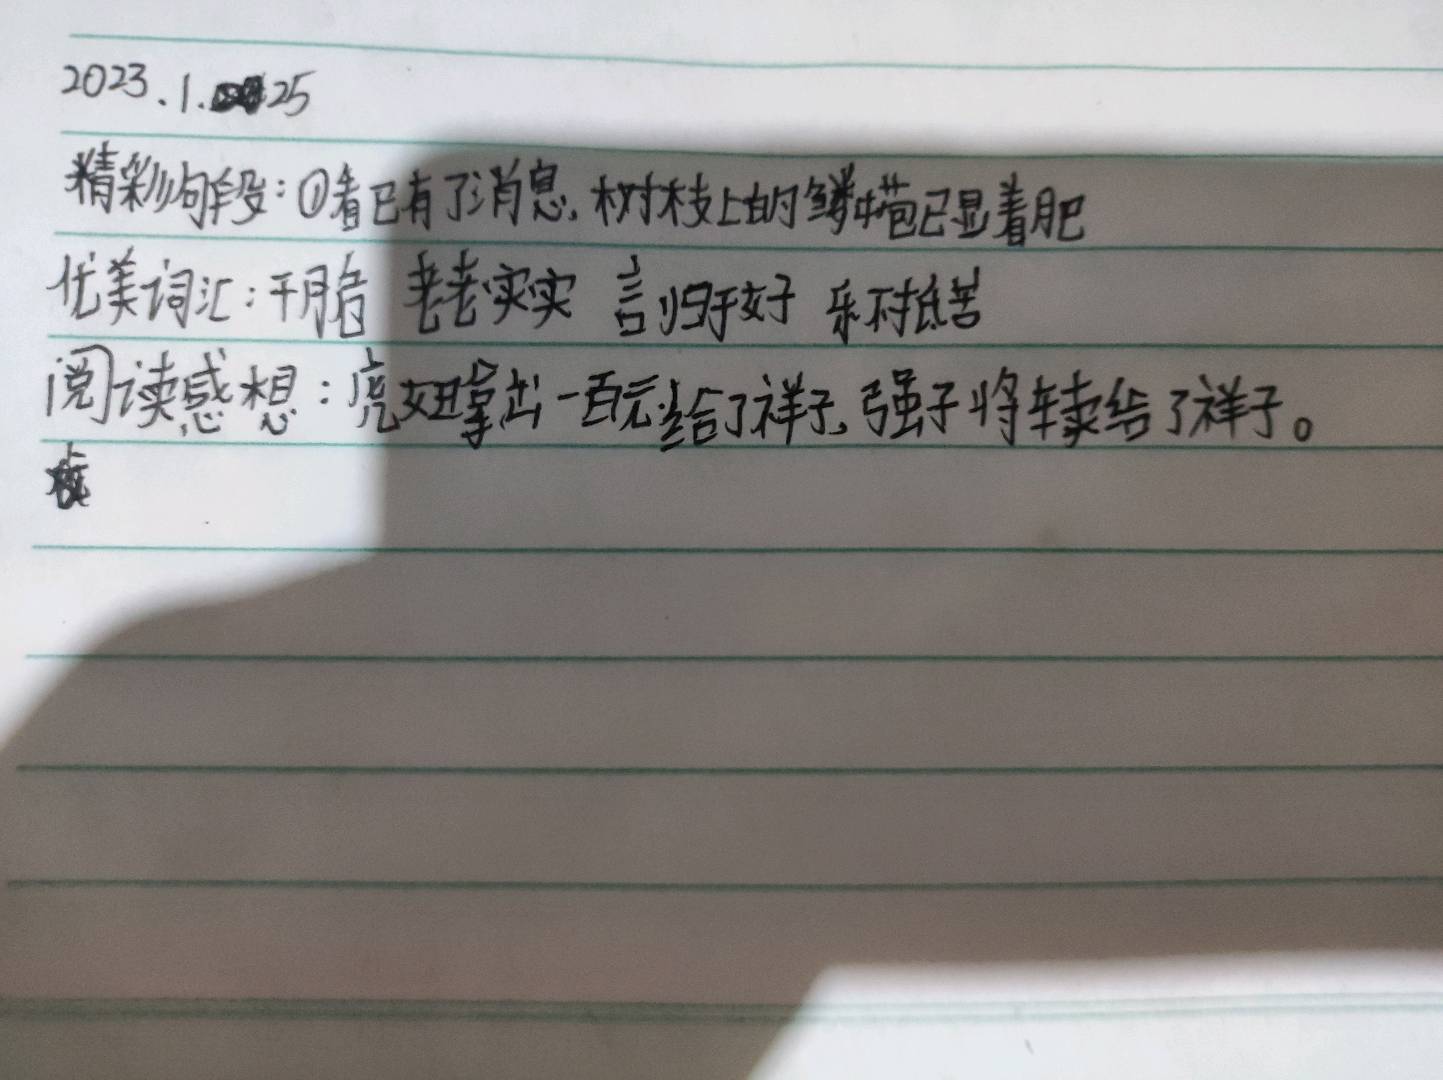 2023.1.25
精彩句段:①看已有了消息,树枝上的鳞苞已显着肥
优美词汇:干脆 老老实实 言归于好 乐不抵苦
阅读感想:虎妞拿出一百元给了祥子,强子将车卖给了祥子。